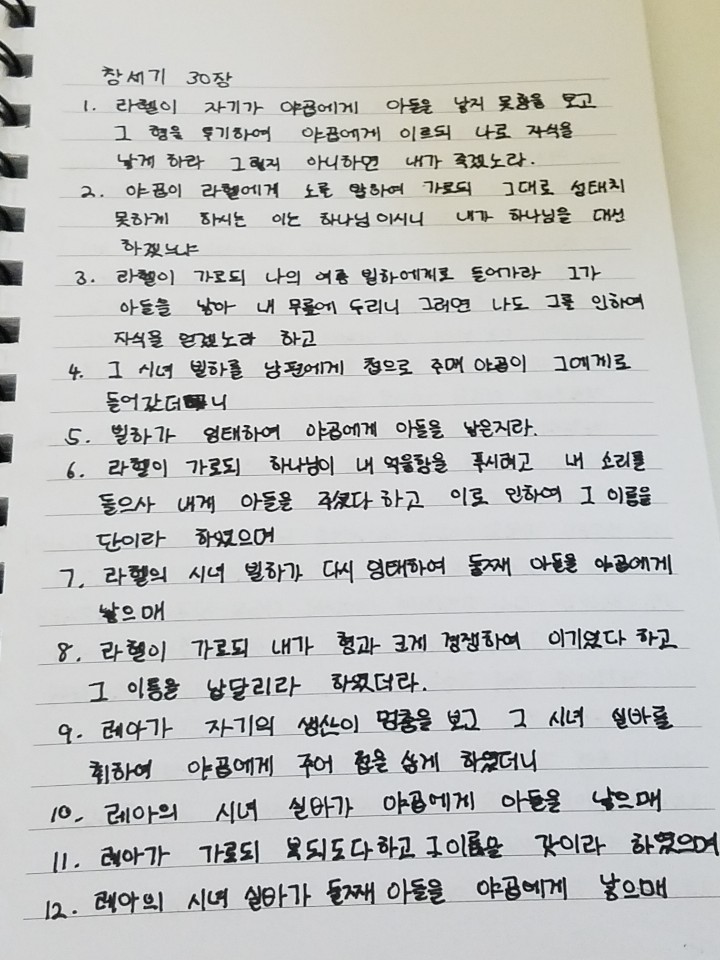 창세기 30장
1. 라헬이 자기가 야곱에게 아들을 낳지 못함을 보고
그 형을 투기하여 야곱에게 이르되 나로 자식을
낳게 하라 그렇지 아니하면 내가 죽겠노라.
2. 야곱이 라헬에게 노를 발하여 가로되 그대로 성태치
못하게 하시는 이는 하나님이시니 내가 하나님을 대신
하겠느냐
3. 라헬이 가로되 나의 여종 빌하에게로 들어가라 그가
아들을 낳아 내 무릎에 두리니 그러면 나도 그를 인하여
자식을 얻겠노라 하고
4. 그 시녀 빌하를 남편에게 첩으로 주매 야곱이 그에게로
들어갔더니
5. 빌하가 잉태하여 야곱에게 아들을 낳은지라.
6. 라헬이 가로되 하나님이 내 억울함을 푸시려고 내 소리를
들으사 내게 아들을 주셨다 하고 이로 인하여 그 이름을
단이라 하였으며
7. 라헬의 시녀 빌하가 다시 잉태하여 둘째 아들을 야곱에게
낳으매
8. 라헬이 가로되 내가 형과 크게 경쟁하여 이기었다 하고
그 이름을 납달리라 하였더라.
9. 레아가 자기의 생산이 멈춤을 보고 그 시녀 실바를
취하여 야곱에게 주어 첩을 삼게 하였더니
10. 레아의 시녀 실바가 야곱에게 아들을 낳으매
11. 레아가 가로되 복되도다 하고 그 이름을 갓이라 하였으며
12. 레아의 시녀 실바가 둘째 아들을 야곱에게 낳으매